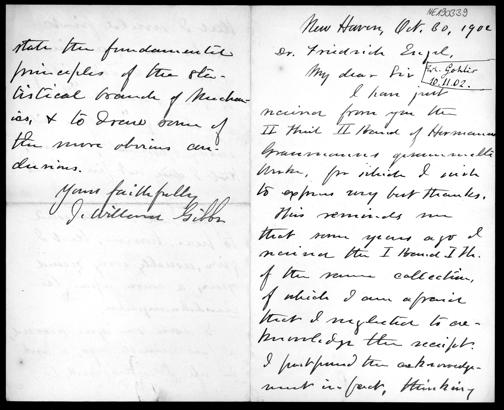 NEI90339
New Haven, Oct. 30, 1902
Dr. Friedrich Engel,
My dear Sir
erh. Gohlis
10.11.02.
I have just
received from you the
II Theil II Band of Hermann
Grassmanns gesammelte
Werke, for which I wish
to express my best thanks.
This reminds me
that some years ago I
received the I Band I Th.
of the same collection,
of which I am afraid
that I neglected to ac-
knowledge the receipt.
I postponed the acknowledg-
ment in fact, thinking
state the fundamental
principles of the sta-
tistical branch of Mechan-
ics, & to draw some of
the more obvious con-
clusions.
Yours faithfully
J. Willard Gibbs